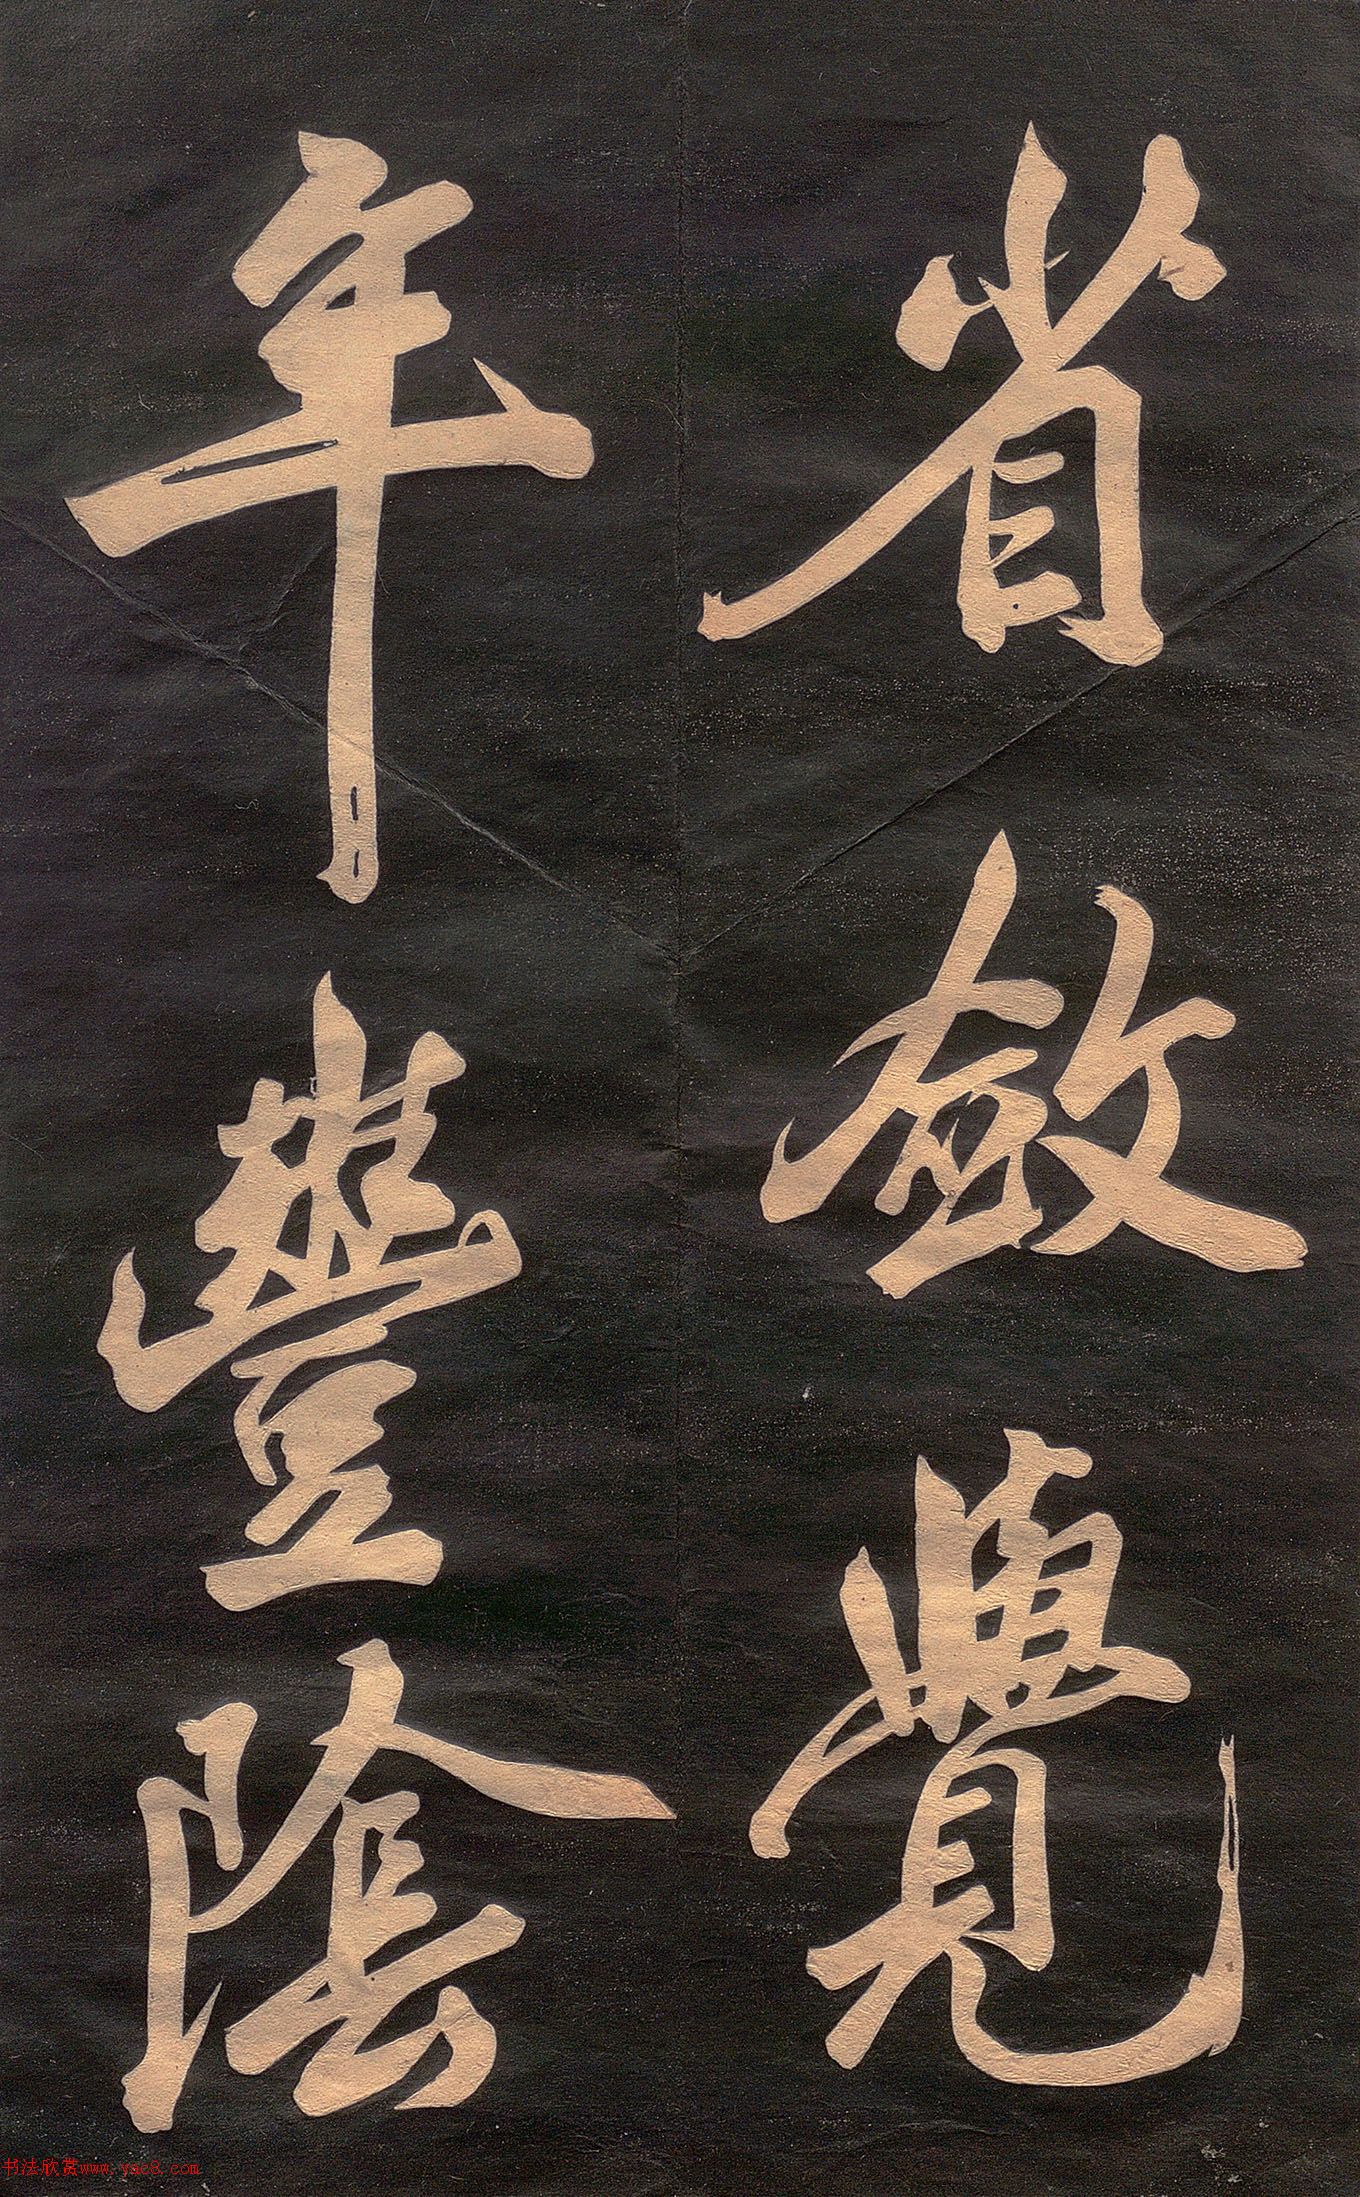 省斂覺
年豐陰
书法欣赏www.yac8.com